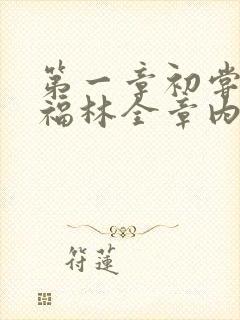 第一章初尝
福林全章内
符莲